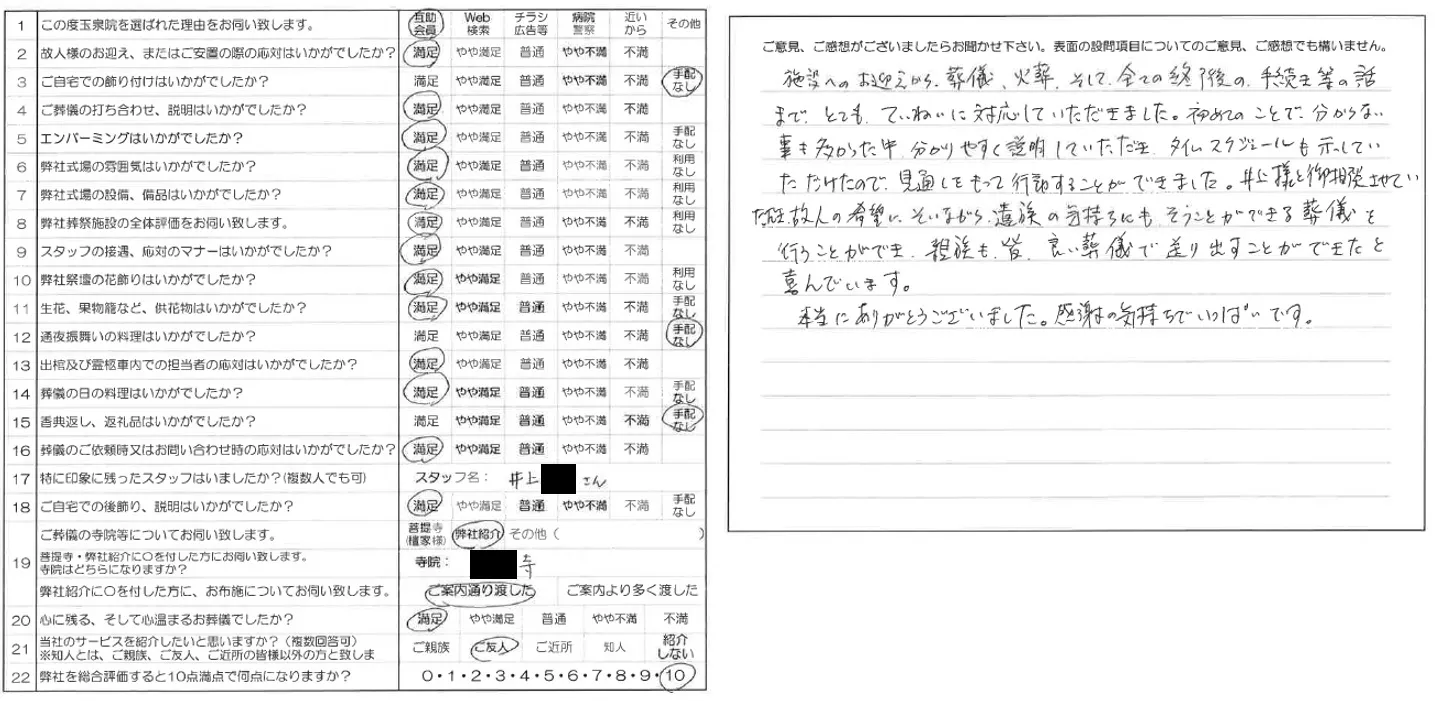 1 この度玉泉院を選ばれた理由をお伺い致します。 互助会員 Web検索 チラシ広告等 病院警察 近いから その他
2 故人様のお迎え、またはご安置の際の応対はいかがでしたか? 満足 やや満足 普通 やや不満 不満
3 ご自宅での飾り付けはいかがでしたか? 満足 やや満足 普通 やや不満 不満 手配なし
4 ご葬儀の打ち合わせ、説明はいかがでしたか? 満足 やや満足 普通 やや不満 不満
5 エンバーミングはいかがでしたか? 満足 やや満足 普通 やや不満 不満 手配なし
6 弊社式場の雰囲気はいかがでしたか? 満足 やや満足 普通 やや不満 不満 利用なし
7 弊社式場の設備、備品はいかがでしたか? 満足 やや満足 普通 やや不満 不満 利用なし
8 弊社葬祭施設の全体評価をお伺い致します。 満足 やや満足 普通 やや不満 不満 利用なし
9 スタッフの接遇、応対のマナーはいかがでしたか? 満足 やや満足 普通 やや不満 不満
10 弊社祭壇の花飾りはいかがでしたか? 満足 やや満足 普通 やや不満 不満 利用なし
11 生花、果物籠など、供花物はいかがでしたか? 満足 やや満足 普通 やや不満 不満 手配なし
12 通夜振舞いの料理はいかがでしたか? 満足 やや満足 普通 やや不満 不満 手配なし
13 出棺及び霊柩車内での担当者の応対はいかがでしたか? 満足 やや満足 普通 やや不満 不満
14 葬儀の日の料理はいかがでしたか? 満足 やや満足 普通 やや不満 不満 手配なし
15 香典返し、返礼品はいかがでしたか? 満足 やや満足 普通 やや不満 不満 手配なし
16 葬儀のご依頼時又はお問い合わせ時の応対はいかがでしたか? 満足 やや満足 普通 やや不満 不満
17 特に印象に残ったスタッフはいましたか?(複数人でも可) スタッフ名: 井上 さん
18 ご自宅での後飾り、説明はいかがでしたか? 満足 やや満足 普通 やや不満 不満 手配なし
19 ご葬儀の寺院等についてお伺い致します。 菩提寺(檀家様) 弊社紹介 その他( )
菩提寺・弊社紹介に○を付した方にお伺い致します。
寺院はどちらになりますか? 寺院: 寺
弊社紹介に○を付した方に、お布施についてお伺い致します。 ご案内通り渡した ご案内より多く渡した
20 心に残る、そして心温まるお葬儀でしたか? 満足 やや満足 普通 やや不満 不満
21 当社のサービスを紹介したいと思いますか?(複数回答可)
※知人とは、ご親族、ご友人、ご近所の皆様以外の方と致しま ご親族 ご友人 ご近所 知人 紹介しない
22 弊社を総合評価すると10点満点で何点になりますか? 0・1・2・3・4・5・6・7・8・9・10
ご意見、ご感想がございましたらお聞かせ下さい。表面の設問項目についてのご意見、ご感想でも構いません。
施設へのお迎えから、葬儀、火葬、そして、全ての終了後の、手続き等の話
まで、とても、ていねいに対応していただきました。初めてのことで、分からない
事も多かった中、分かりやすく説明していただき、タイムスケジュールも示してい
ただけたので、見通しをもって行動することができました。井上様と御相談させてい
ただき、故人の希望に、そいながら、遺族の気持ちにも、そうことができる葬儀を
行うことができ、親族も、皆、良い葬儀で送り出すことができたと
喜んでいます。
本当にありがとうございました。感謝の気持ちでいっぱいです。